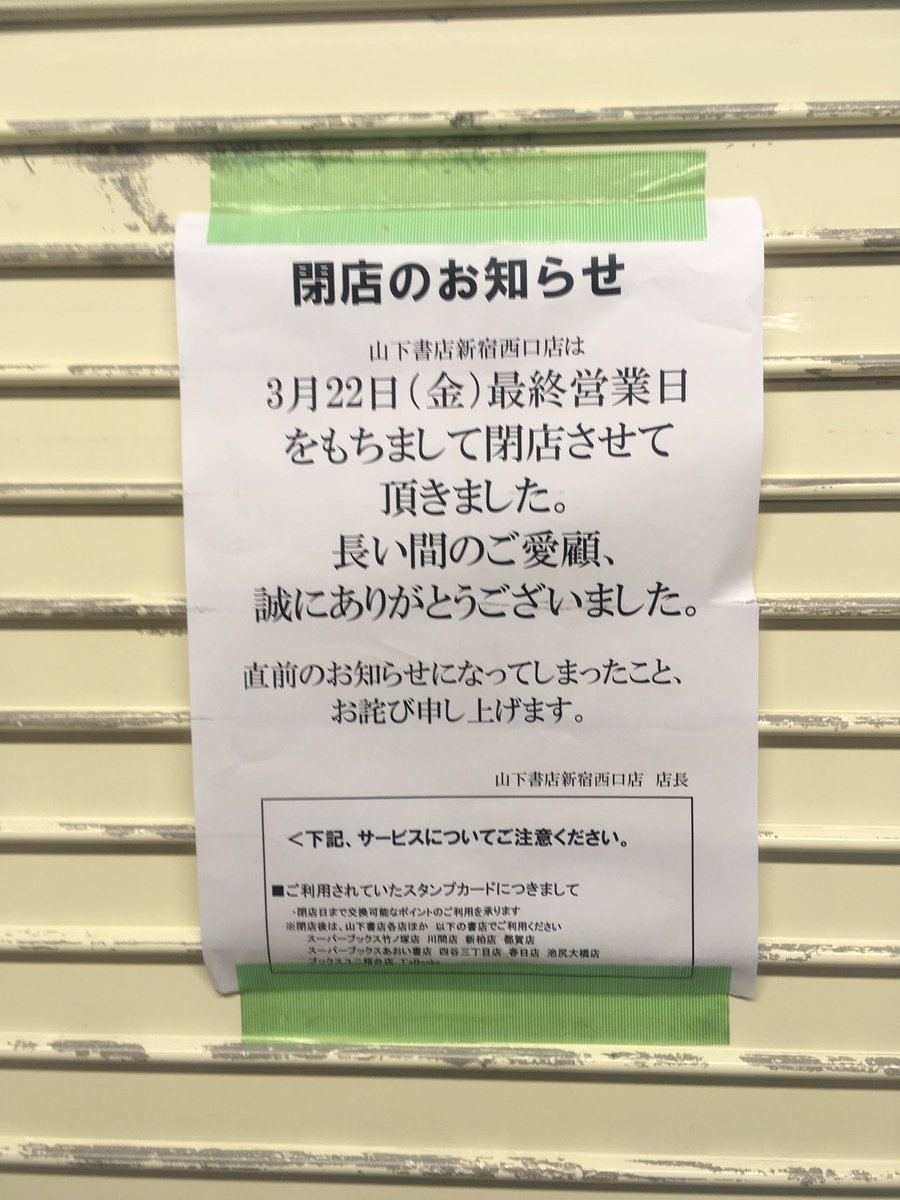 閉店のお知らせ
山下書店新宿西口店は
3月22日(金)最終営業日
をもちまして閉店させて
頂きました。
長い間のご愛顧、
誠にありがとうございました。
直前のお知らせになってしまったこと、
お詫び申し上げます。
山下書店新宿西口店 店長
<下記、サービスについてご注意ください。
■ご利用されていたスタンプカードにつきまして
・閉店日まで交換可能なポイントのご利用を承ります
※閉店後は、山下書店各店ほか 以下の書店でご利用ください
スーパーブックス竹ノ塚店 川間店 新柏店 都賀店
スーパーブックスあおい書店 四谷三丁目店 春日店 池尻大橋店